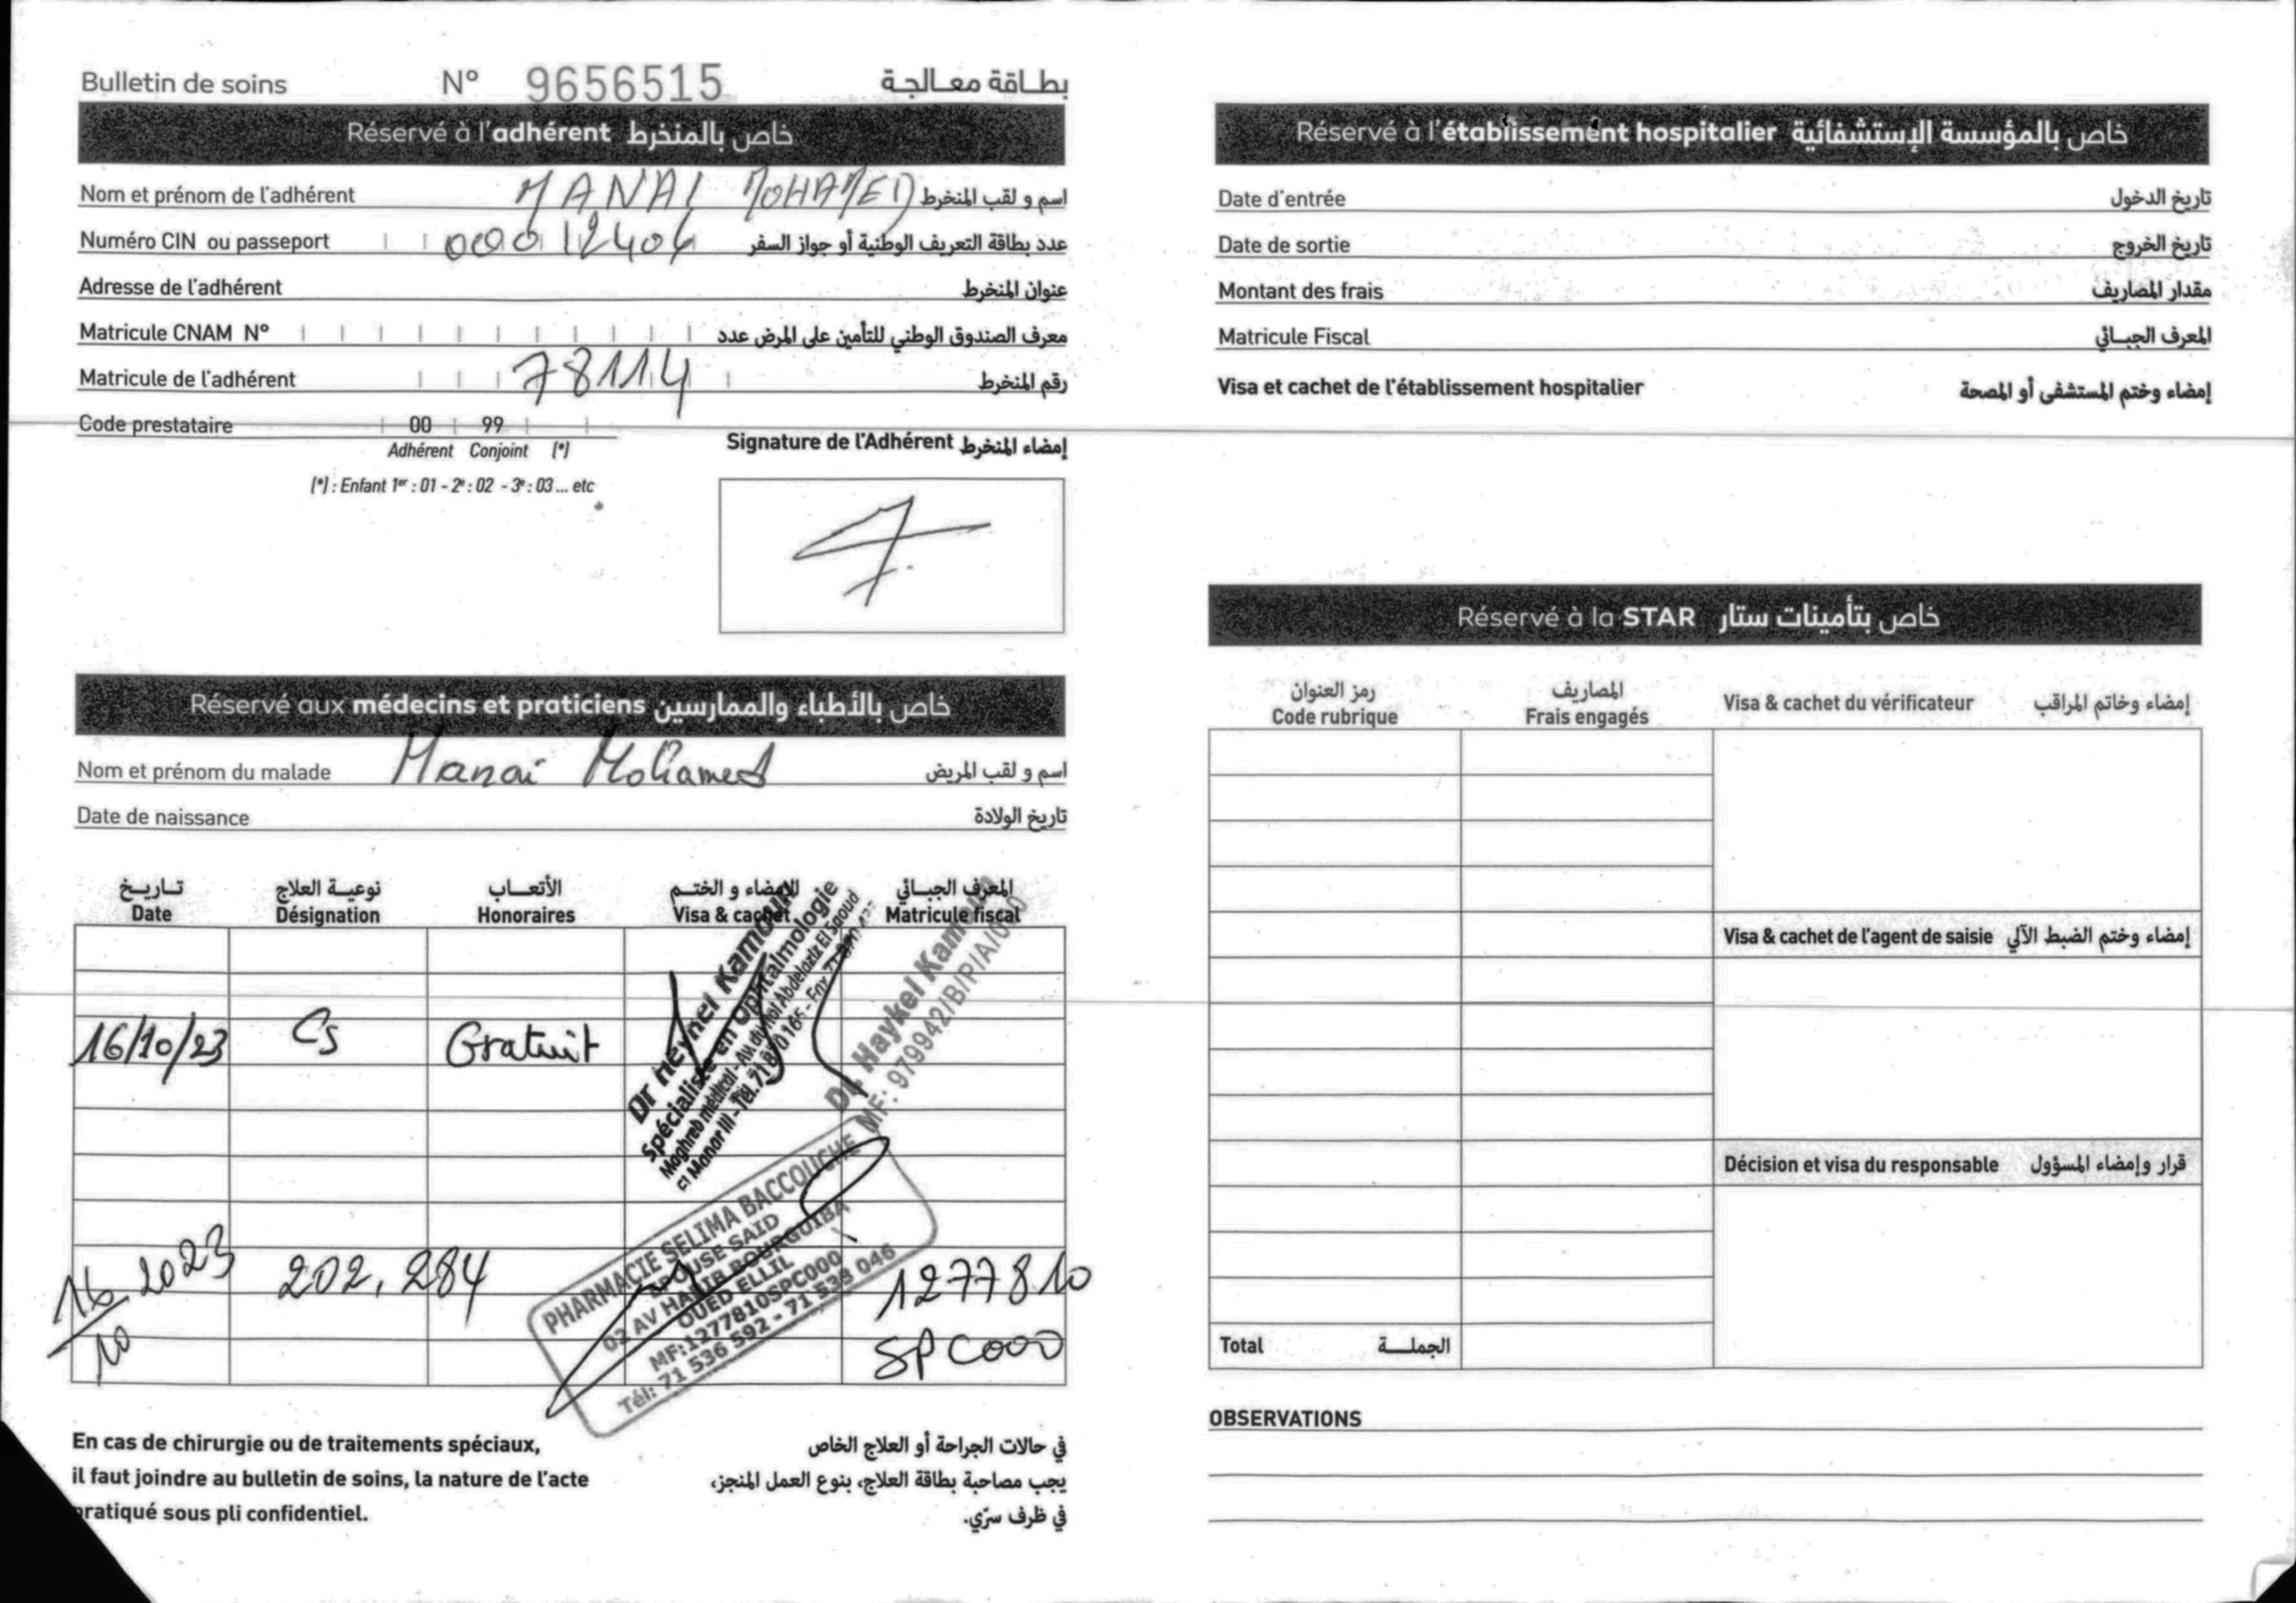 Bulletin de soins N° 9656515 بطاقة معالجة
Réservé à l'adhérent خاص بالمنخرط
Nom et prénom de l'adhérent MANAI MOHAMED اسم و لقب المنخرط
Numéro CIN ou passeport 00012406 عدد بطاقة التعريف الوطنية أو جواز السفر
Adresse de l'adhérent عنوان المنخرط
Matricule CNAM N° معرف الصندوق الوطني للتأمين على المرض عدد
Matricule de l'adhérent 78114 رقم المنخرط
Code prestataire 00 99
Adhérent Conjoint (*)
(*) : Enfant 1er : 01 - 2e : 02 - 3e : 03 ... etc
Signature de l'Adhérent إمضاء المنخرط
Réservé aux médecins et praticiens خاص بالأطباء والممارسين
Nom et prénom du malade Manai Mohamed اسم و لقب المريض
Date de naissance تاريخ الولادة
تاريخ نوعية العلاج الأتعاب الإمضاء و الختم المعرف الجبائي
Date Désignation Honoraires Visa & cachet Matricule fiscal
16/10/23 Cs Gratuit
Dr Heykel Kamoun
Spécialiste en Ophtalmologie
Maghreb médical - Av. du
El Manar III - Tél. 71 870 165 - Fax
Dr. Haykel Kamoun
MF: 979942/B/P/A/000
16/10 2023 202,284 1277810
SPC000
PHARMACIE SELIMA BACCOUCHE
EPOUSE SAID
02 AV HABIB BOURGUIBA
OUED ELLIL
MF:1277810SPC000
Tél: 71 536 592 - 71 533 046
En cas de chirurgie ou de traitements spéciaux,
il faut joindre au bulletin de soins, la nature de l'acte
pratiqué sous pli confidentiel.
في حالات الجراحة أو العلاج الخاص
يجب مصاحبة بطاقة العلاج، بنوع العمل المنجز،
في ظرف سرّي.
Réservé à l'établissement hospitalier خاص بالمؤسسة الإستشفائية
Date d'entrée تاريخ الدخول
Date de sortie تاريخ الخروج
Montant des frais مقدار المصاريف
Matricule Fiscal المعرف الجبائي
Visa et cachet de l'établissement hospitalier إمضاء وختم المستشفى أو المصحة
Réservé à la STAR خاص بتأمينات ستار
رمز العنوان المصاريف
Code rubrique Frais engagés Visa & cachet du vérificateur إمضاء وخاتم المراقب
Visa & cachet de l'agent de saisie إمضاء وختم الضبط الآلي
Décision et visa du responsable قرار وإمضاء المسؤول
Total الجملة
OBSERVATIONS